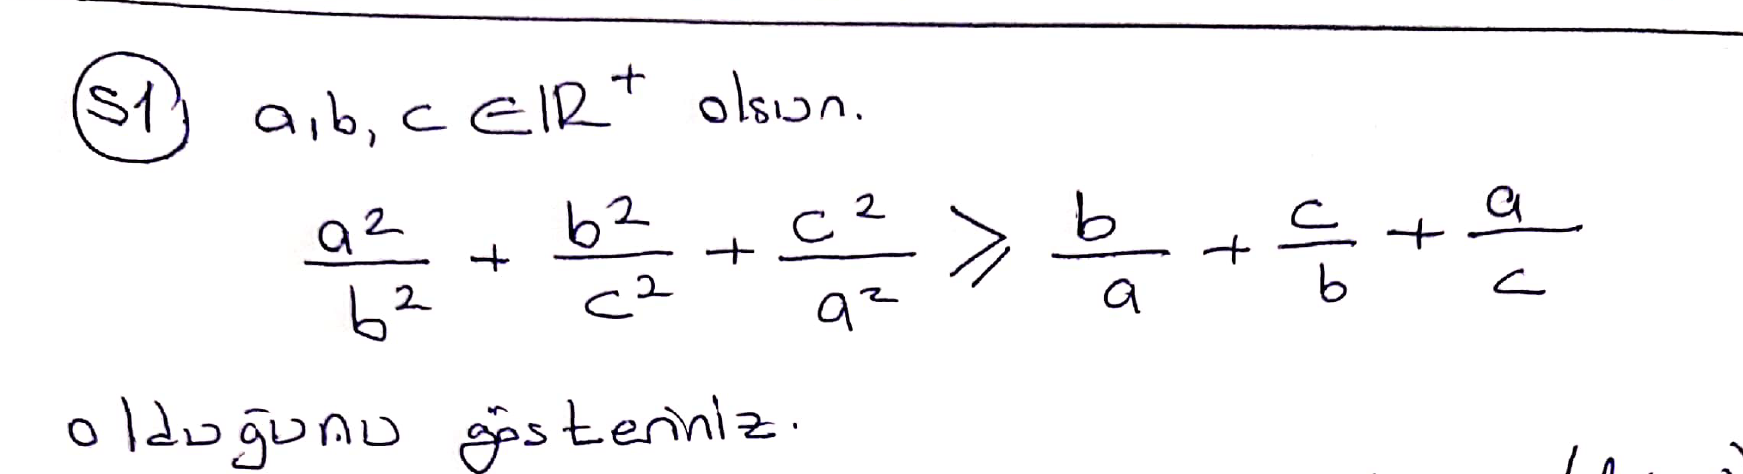 S1) a, b, c ∈ ℝ⁺ olsun.
a²/b² + b²/c² + c²/a² ⩾ b/a + c/b + a/c
olduğunu gösteriniz.